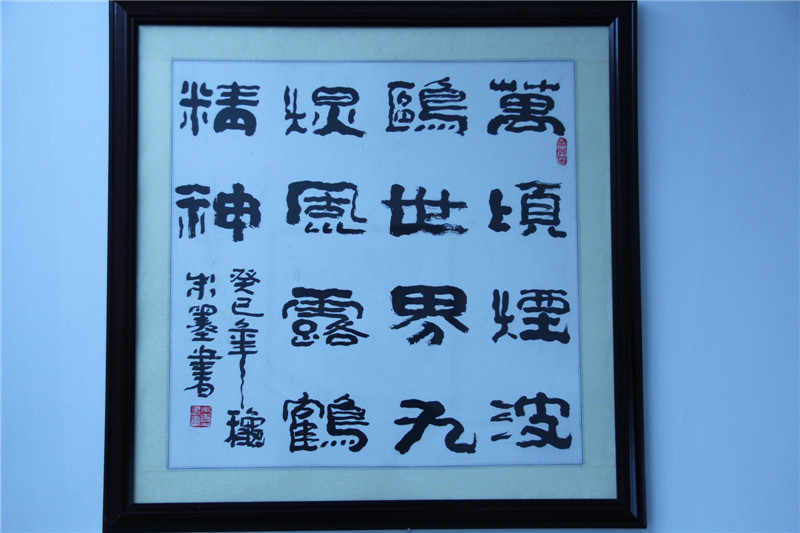 萬頃煙波
鷗世界九
風露鶴
精神
癸巳年龝
朱墨書